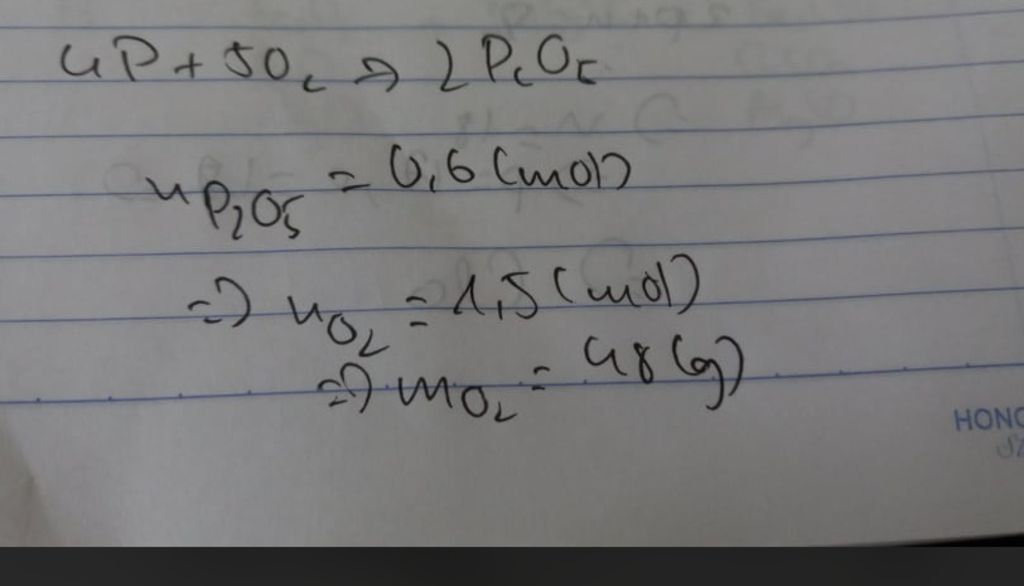 4P + 5O₂ => 2P₂O₅
nP₂O₅ = 0,6 (mol)
=> nO₂ = 1,5 (mol)
=> mO₂ = 48 (g)